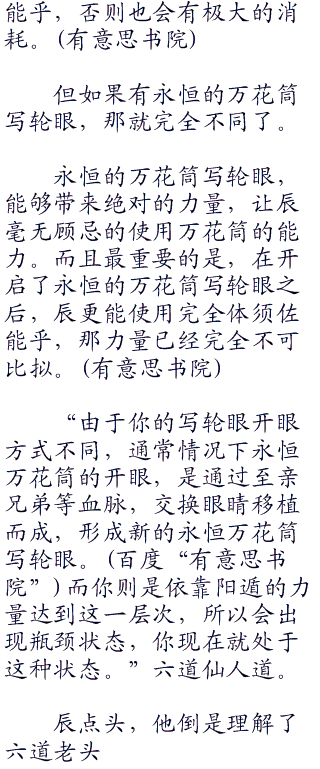 能乎，否则也会有极大的消
耗。(有意思书院)
但如果有永恒的万花筒
写轮眼，那就完全不同了。
永恒的万花筒写轮眼，
能够带来绝对的力量，让辰
毫无顾忌的使用万花筒的能
力。而且最重要的是，在开
启了永恒的万花筒写轮眼之
后，辰更能使用完全体须佐
能乎，那力量已经完全不可
比拟。(有意思书院)
“由于你的写轮眼开眼
方式不同，通常情况下永恒
万花筒的开眼，是通过至亲
兄弟等血脉，交换眼睛移植
而成，形成新的永恒万花筒
写轮眼。(百度“有意思书
院”)而你则是依靠阳遁的力
量达到这一层次，所以会出
现瓶颈状态，你现在就处于
这种状态。”六道仙人道。
辰点头，他倒是理解了
六道老头